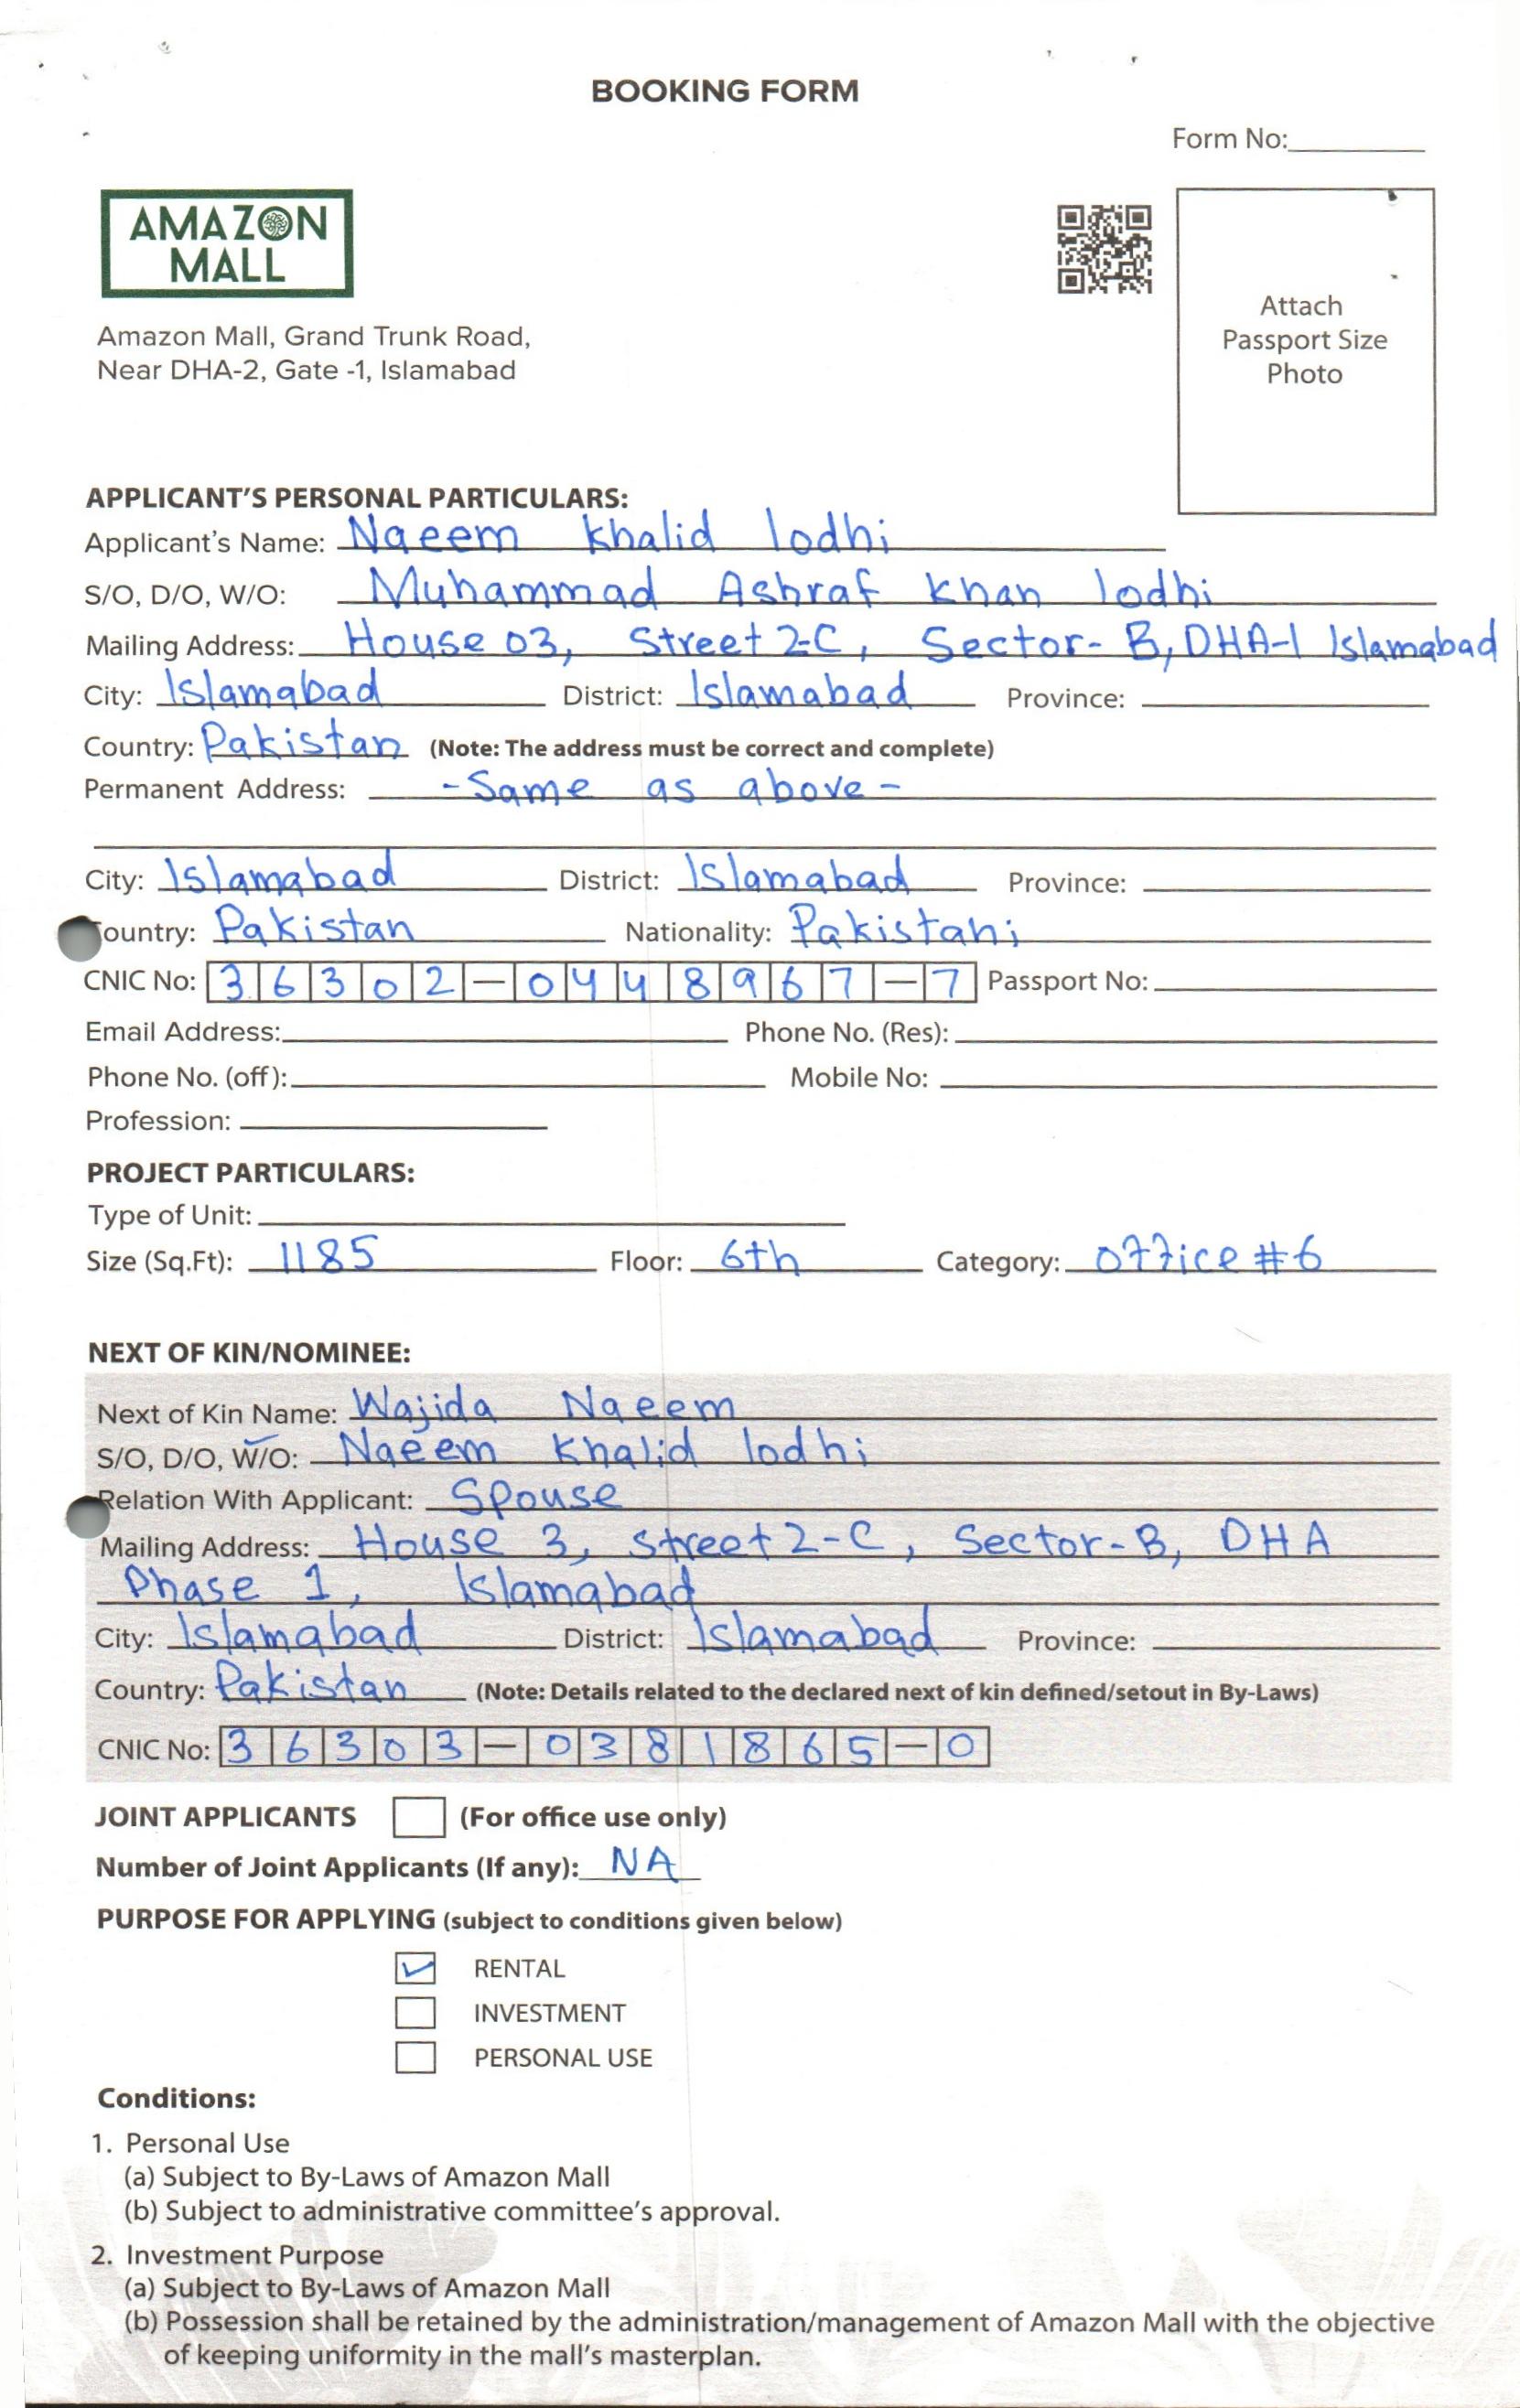 BOOKING FORM
Form No:
AMAZON
MALL
Attach
Passport Size
Photo
Amazon Mall, Grand Trunk Road,
Near DHA-2, Gate -1, Islamabad
APPLICANT'S PERSONAL PARTICULARS:
Applicant's Name: Naeem Khalid lodhi
S/O, D/O, W/O: Muhammad Ashraf Khan lodhi
Mailing Address: House 03, Street 2-C, Sector- B, DHA-1 Islamabad
City: Islamabad District: Islamabad Province:
Country: Pakistan (Note: The address must be correct and complete)
Permanent Address: - Same as above -
City: Islamabad District: Islamabad Province:
Country: Pakistan Nationality: Pakistani
CNIC No: 36302-0448967-7 Passport No:
Email Address: Phone No. (Res):
Phone No. (off): Mobile No:
Profession:
PROJECT PARTICULARS:
Type of Unit:
Size (Sq.Ft): 1185 Floor: 6th Category: office #6
NEXT OF KIN/NOMINEE:
Next of Kin Name: Wajida Naeem
S/O, D/O, W/O: Naeem Khalid lodhi
Relation With Applicant: Spouse
Mailing Address: House 3, Street 2-C, Sector-B, DHA
Phase 1, Islamabad
City: Islamabad District: Islamabad Province:
Country: Pakistan (Note: Details related to the declared next of kin defined/setout in By-Laws)
CNIC No: 36303-0381865-0
JOINT APPLICANTS (For office use only)
Number of Joint Applicants (If any): NA
PURPOSE FOR APPLYING (subject to conditions given below)
RENTAL
INVESTMENT
PERSONAL USE
Conditions:
1. Personal Use
(a) Subject to By-Laws of Amazon Mall
(b) Subject to administrative committee's approval.
2. Investment Purpose
(a) Subject to By-Laws of Amazon Mall
(b) Possession shall be retained by the administration/management of Amazon Mall with the objective
of keeping uniformity in the mall's masterplan.